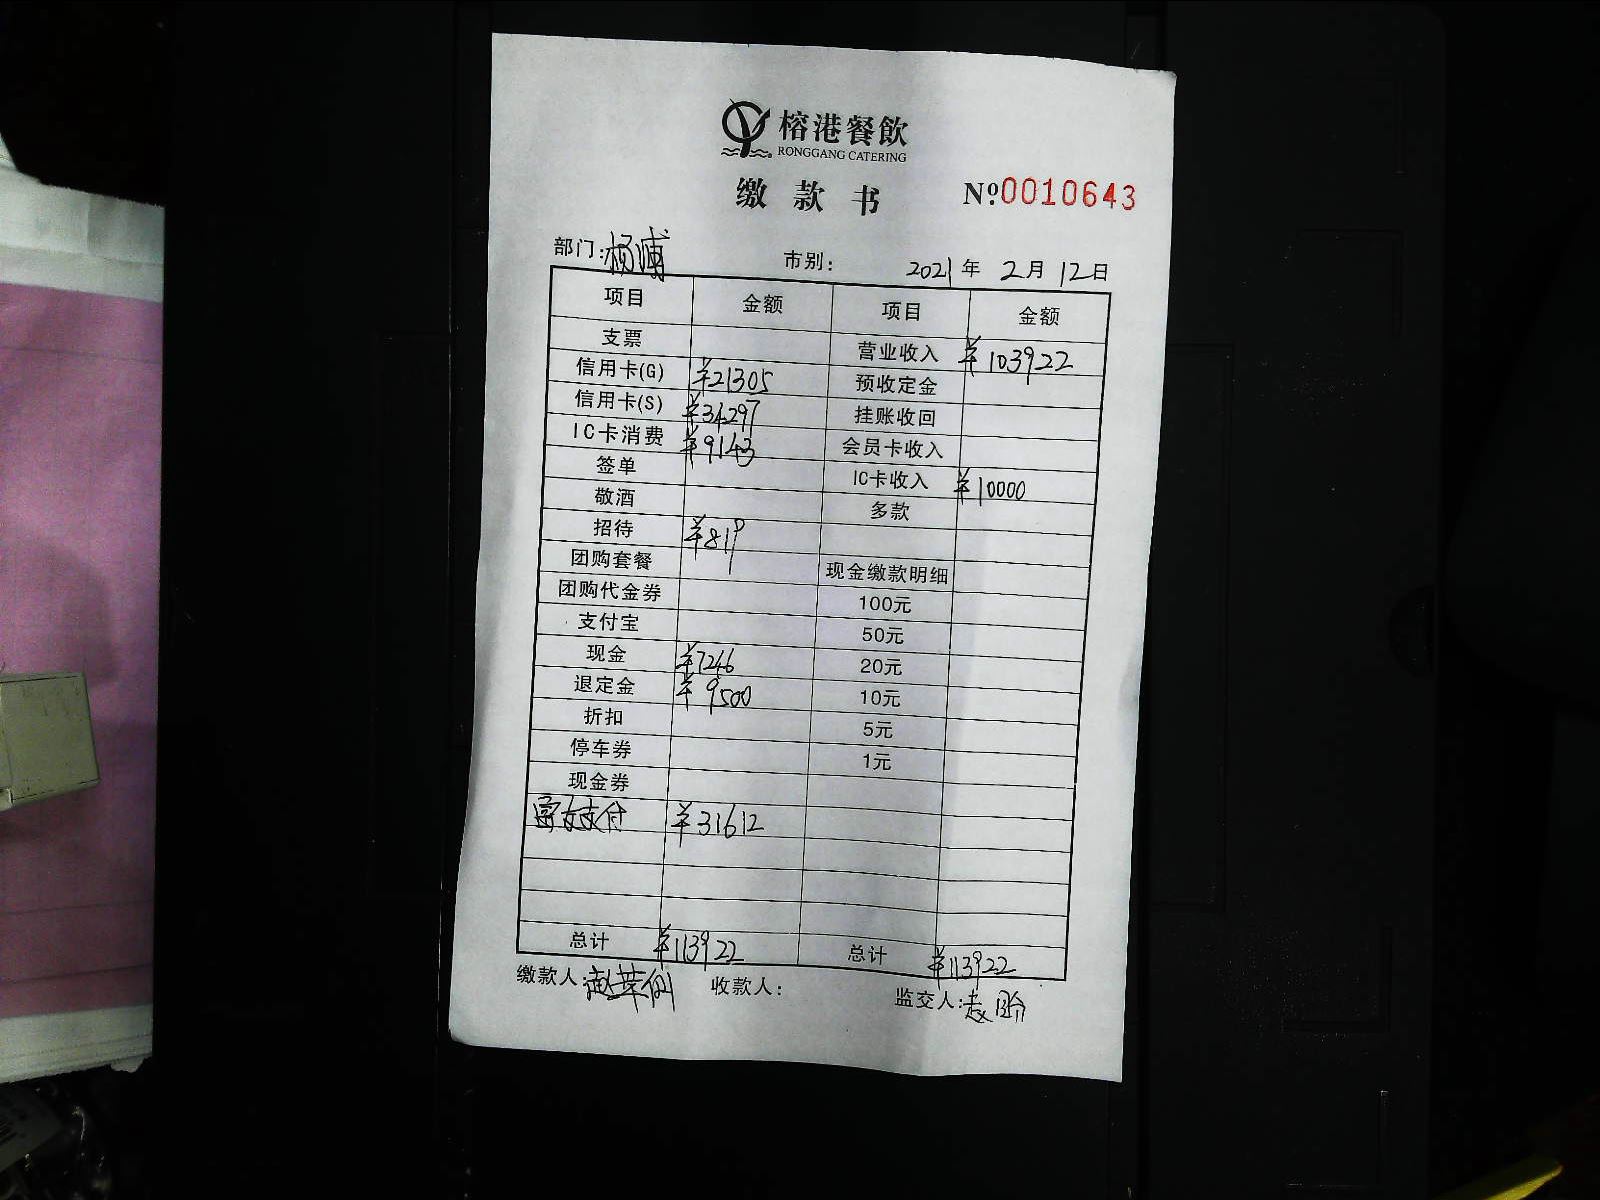 榕港餐飲
RONGGANG CATERING
缴款书 №0010643
部门:杨浦 市别: 2021年2月12日
项目 金额 项目 金额
支票 营业收入 ¥103922
信用卡(G) ¥21305 预收定金
信用卡(S) ¥34297 挂账收回
IC卡消费 ¥9143 会员卡收入
签单 IC卡收入 ¥10000
敬酒 多款
招待 ¥819
团购套餐 现金缴款明细
团购代金券 100元
支付宝 50元
现金 ¥7246 20元
退定金 ¥9500 10元
折扣 5元
停车券 1元
现金券
支付 ¥31612
总计 ¥113922 总计 ¥113922
缴款人:赵 收款人: 监交人: